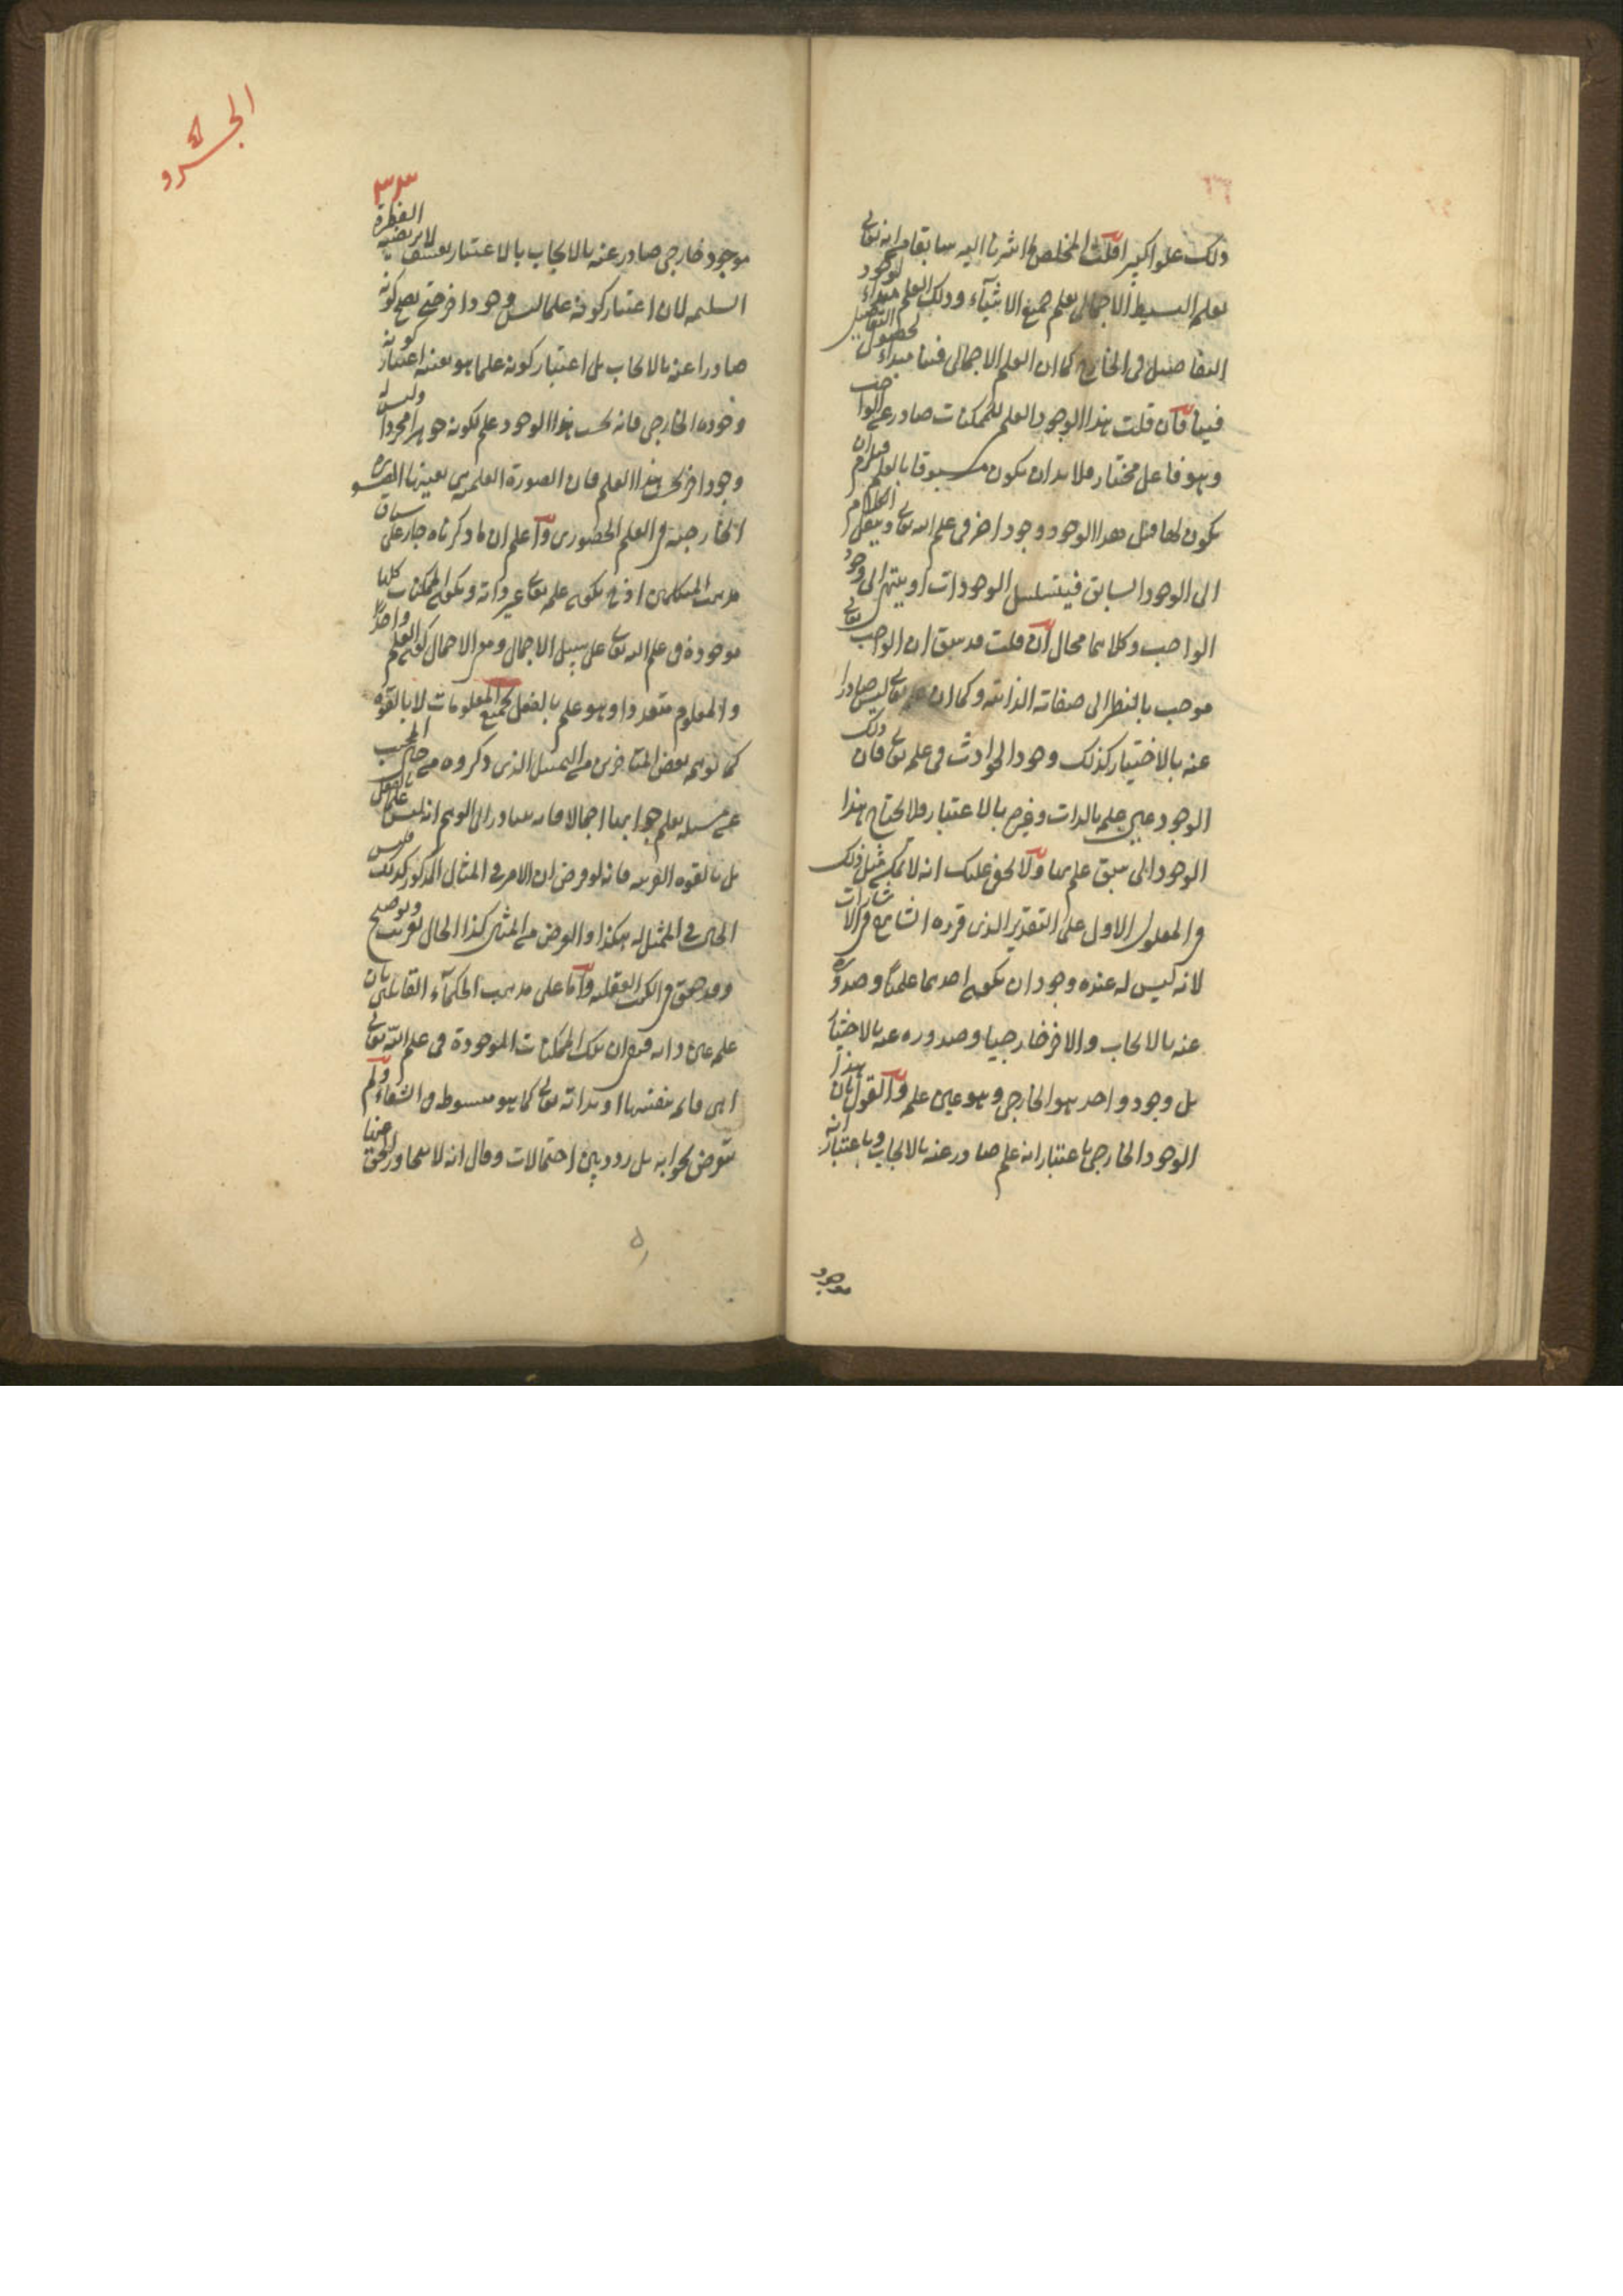 ذلك علوا كبيرا قلت المخلص ما اشرنا اليه سابقا من انه تعالى
يعلم البسيط الاجمالى يعلم جميع الاشياء وذلك العلم مبداء لوجود
التفاصيل فى الخارج كما ان العلم الاجمالى فينا مبداء لحصول التفاصيل
فينا فان قلت هذا الوجود العلمى للممكنات صادر عن الواجب
وهو فاعل مختار فلا بد ان يكون مسبوقا بالعلم فيلزم ان
يكون لها قبل هذا الوجود وجود اخر فى علم الله تعالى وينقل الكلام
الى الوجود السابق فيتسلسل الوجودات او ينتهى الى وجود
الواجب وكلاهما محال قلت قد سبق ان الواجب تعالى
موجب بالنظر الى صفاته الذاتية وكما ان علمه تعالى ليس صادرا
عنه بالاختيار كذلك وجود الحوادث فى علمه تعالى فان ذلك
الوجود عين علمه بالذات وغيره بالاعتبار فلا يحتاج هذا
الوجود الى سبق علم بها ولا يخفى عليك انه لا يمكن مثل ذلك
فى المعلول الاول على التقدير الذى قرره الشارح فى الاشارات
لانه ليس له عنده وجودان يكون احدهما علميا وصدوره
عنه بالايجاب والاخر خارجيا وصدوره عنه بالاختيار
بل وجود واحد هو الخارجى وهو عين علمه والقول بان هذا
الوجود الخارجى باعتبار انه علم صادر عنه بالايجاب وباعتبار انه
موجود
الجزو
٣٣
موجود خارجى صادر عنه بالايجاب بالاعتبار تعسف لا يرتضيه الفطرة
السليمة لان اعتبار كونه علما ليس وجودا اخر حتى يصح كونه
صادرا عنه بالايجاب بل اعتبار كونه علما هو بعينه اعتبار كونه
وجوده الخارجى فانه بحسب هذا الوجود علم لكونه جوهرا مجردا وليس له
وجود اخر بحسب هذا العلم فان الصورة العلمية هى بعينها الصورة
الخارجية فى العلم الحضورى واعلم ان ما ذكرناه جار على سياق
مذهب المتكلمين اذ ح يكون علمه تعالى غير ذاته ويكون الممكنات كلها
موجودة فى علم الله تعالى على سبيل الاجمال ومع الاجمال كون العلم واحدا
والمعلوم متعددا وهو علم بالفعل بجميع المعلومات لا بالقوة
كما توهمه بعض المتاخرين من التمثيل الذى ذكروه من حال المجيب
عن مسئلة يعلم جوابها اجمالا فانه يتبادر الى الوهم انه ليس علما بالفعل
بل بالقوة القريبة فانه لو فرض ان الامر فى المثال المذكور كذلك فليس
الحال فى الممثل له هكذا والغرض من المثال كذا الحال تقريب وتوضيح
وقد حقق فى الكتب العقلية واما على مذهب الحكماء القائلين بان
علمه عين ذاته فيقال ان تلك الممكنات الموجودة فى علم الله تعالى
اهى قائمة بنفسها او بذاته تعالى كما هو مبسوط فى الشفاء ولم
يتعرض لجوابه بل ردد بين احتمالات وقال انه لا يتجاوز الحق عنها